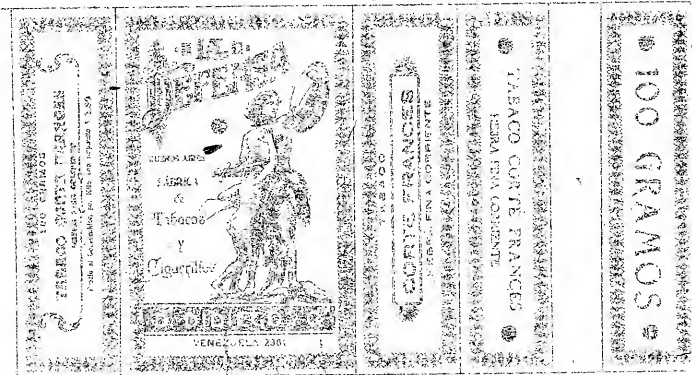 100 GRAMOS
TABACO CORTE FRANCES
LA
DEFENSA
BUENOS AIRES
FÁBRICA
de
Tabacos
y
Cigarrillos
VENEZUELA 2301
TABACO
CORTE FRANCES
HEBRA FINA CORRIENTE
TABACO CORTE FRANCES
HEBRA FINA CORRIENTE
100 GRAMOS